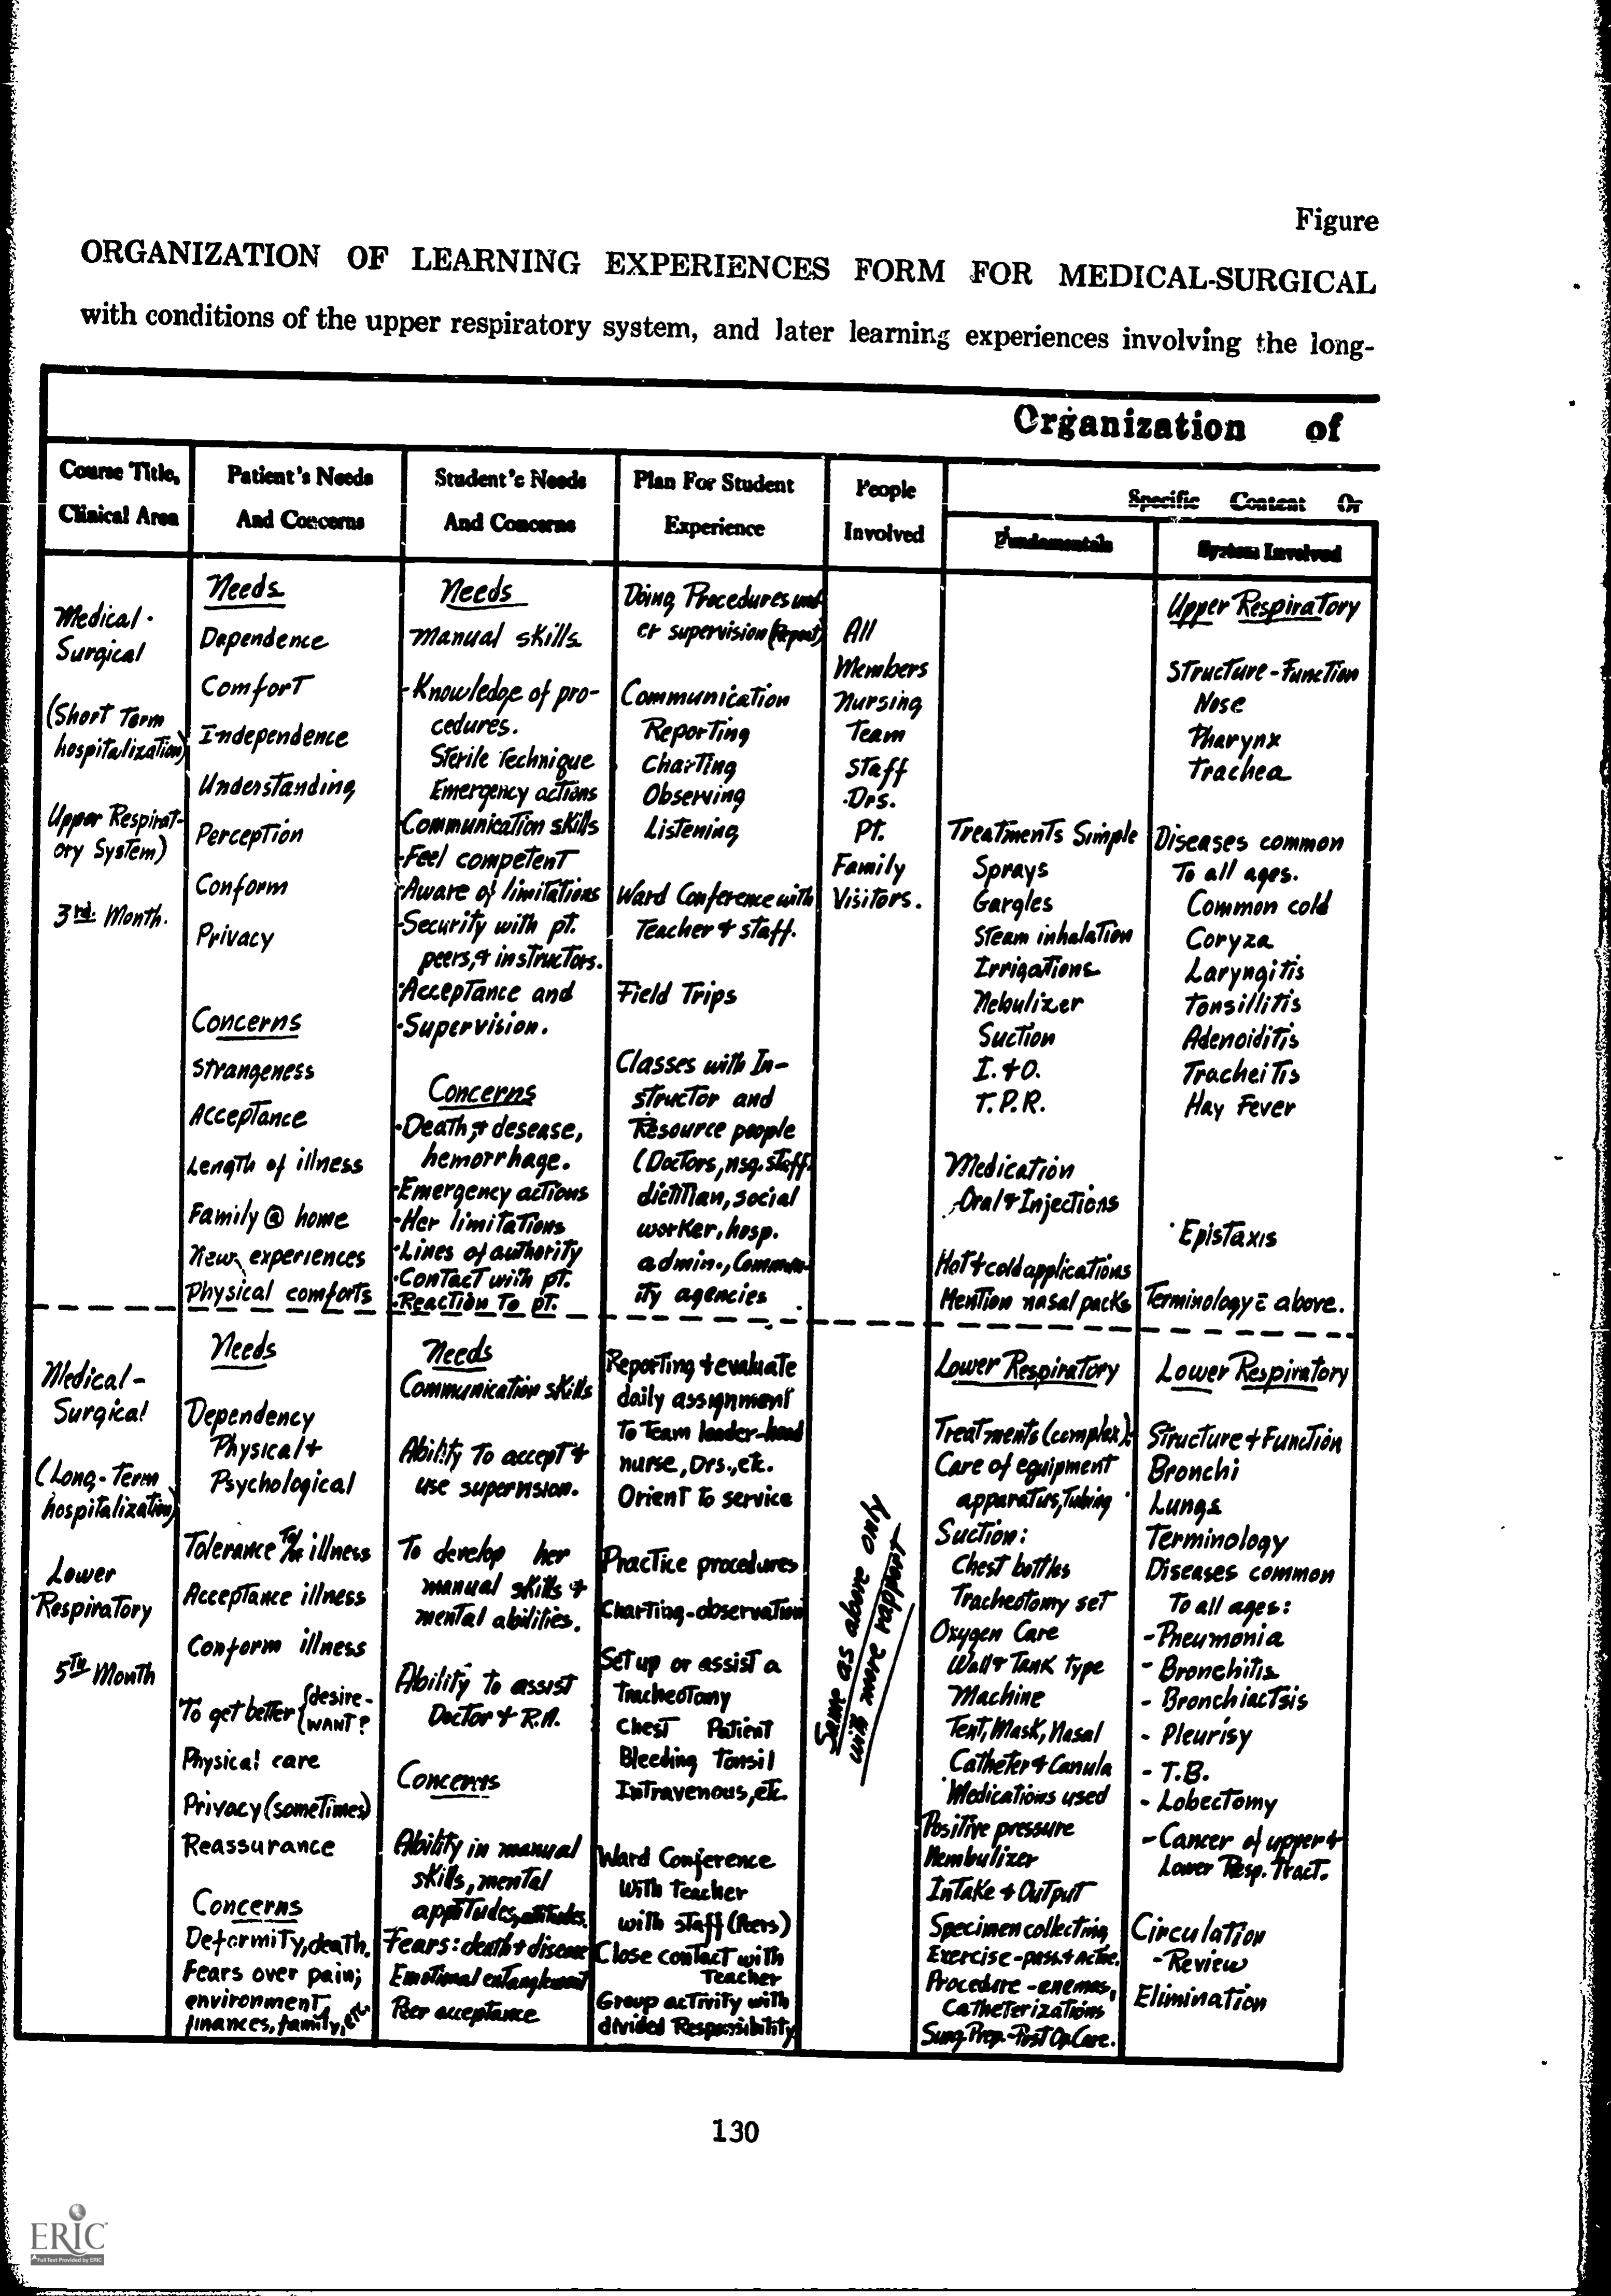 Figure
ORGANIZATION OF LEARNING EXPERIENCES FORM FOR MEDICAL-SURGICAL
with conditions of the upper respiratory system, and later learning experiences involving the long-
Organization of
Course Title,
Clinical Area
Patient's Needs
And Concerns
Student's Needs
And Concerns
Plan For Student
Experience
People
Involved
Specific Content Or
Fundamentals
System Involved
Medical-
Surgical
(Short Term
hospitalization)
Upper Respirat-
ory System)
3rd. Month.
Needs
Dependence
Comfort
Independence
Understanding
Perception
Conform
Privacy
Concerns
Strangeness
Acceptance
Length of illness
Family @ home
New experiences
Physical comforts
Needs
manual skills
-Knowledge of pro-
cedures.
Sterile Technique
Emergency actions
-Communication skills
-Feel competent
-Aware of limitations
-Security with pt.
peers, & instructors.
-Acceptance and
-Supervision.
Concerns
-Death, & desease,
hemorrhage.
-Emergency actions
-Her limitations
-Lines of authority
-Contact with pt.
-Reaction To pt.
Doing Procedures und-
er supervision (Repeat)
Communication
Reporting
Charting
Observing
Listening
Ward Conference with
Teacher & staff.
Field Trips
Classes with In-
structor and
Resource people
(Doctors, nsg. staff.
dietitian, social
worker, hosp.
admin., Commun-
ity agencies
All
Members
Nursing
Team
Staff
Drs.
Pt.
Family
Visitors.
Treatments Simple
Sprays
Gargles
Steam inhalation
Irrigations
Nebulizer
Suction
I. & O.
T.P.R.
Medication
Oral & Injections
Hot & cold applications
Mention nasal packs
Upper Respiratory
Structure-Function
Nose
Pharynx
Trachea
Diseases common
To all ages.
Common cold
Coryza
Laryngitis
Tonsillitis
Adenoiditis
Tracheitis
Hay Fever
Epistaxis
Terminology c̄ above.
Medical-
Surgical
(Long-Term
hospitalization)
Lower
Respiratory
5th Month
Needs
Dependency
Physical &
Psychological
Tolerance To/for illness
Acceptance illness
Conform illness
To get better {desire-
WANT?
Physical care
Privacy (sometimes)
Reassurance
Concerns
Deformity, death.
Fears over pain;
environment
finances, family, etc
Needs
Communication skills
Ability To accept &
use supervision.
To develop her
manual skills &
mental abilities.
Ability To assist
Doctor & R.N.
Concerns
Ability in manual
skills, mental
apptitudes, attitudes.
Fears: death & disease
Emotional entanglement
Peer acceptance
Reporting & evaluate
daily assignment
To Team leader-head
nurse, Drs., etc.
Orient to service
Practice procedures
Charting-observation
Set up or assist a
Tracheotomy
Chest Patient
Bleeding Tonsil
Intravenous, etc.
Ward Conference
With Teacher
with staff (Peers)
Close contact with
Teacher
Group activity with
divided Responsibility
Same as above only
with more
Lower Respiratory
Treatments (complex):
Care of equipment
apparatus, Tubing
Suction:
Chest bottles
Tracheotomy set
Oxygen Care
Wall & Tank type
Machine
Tent, Mask, Nasal
Catheter & Canula
Medications used
Positive pressure
Nembulizer
Intake & Output
Specimen collecting
Exercise-pass. & active.
Procedure-enemas,
Catheterizations
Surg. Prep.-Post Op. Care.
Lower Respiratory
Structure & Function
Bronchi
Lungs
Terminology
Diseases common
To all ages:
-Pneumonia
- Bronchitis
- Bronchiactsis
- Pleurisy
- T.B.
- Lobectomy
-Cancer of upper &
Lower Resp. Tract.
Circulation
-Review
Elimination
130
ERIC
Full Text Provided by ERIC